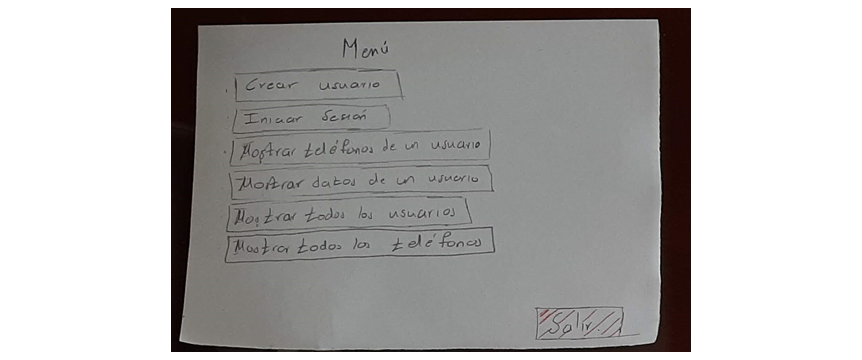 Menú
Crear usuario
Iniciar Sesión
Mostrar teléfonos de un usuario
Mostrar datos de un usuario
Mostrar todos los usuarios
Mostrar todos los teléfonos
Salir